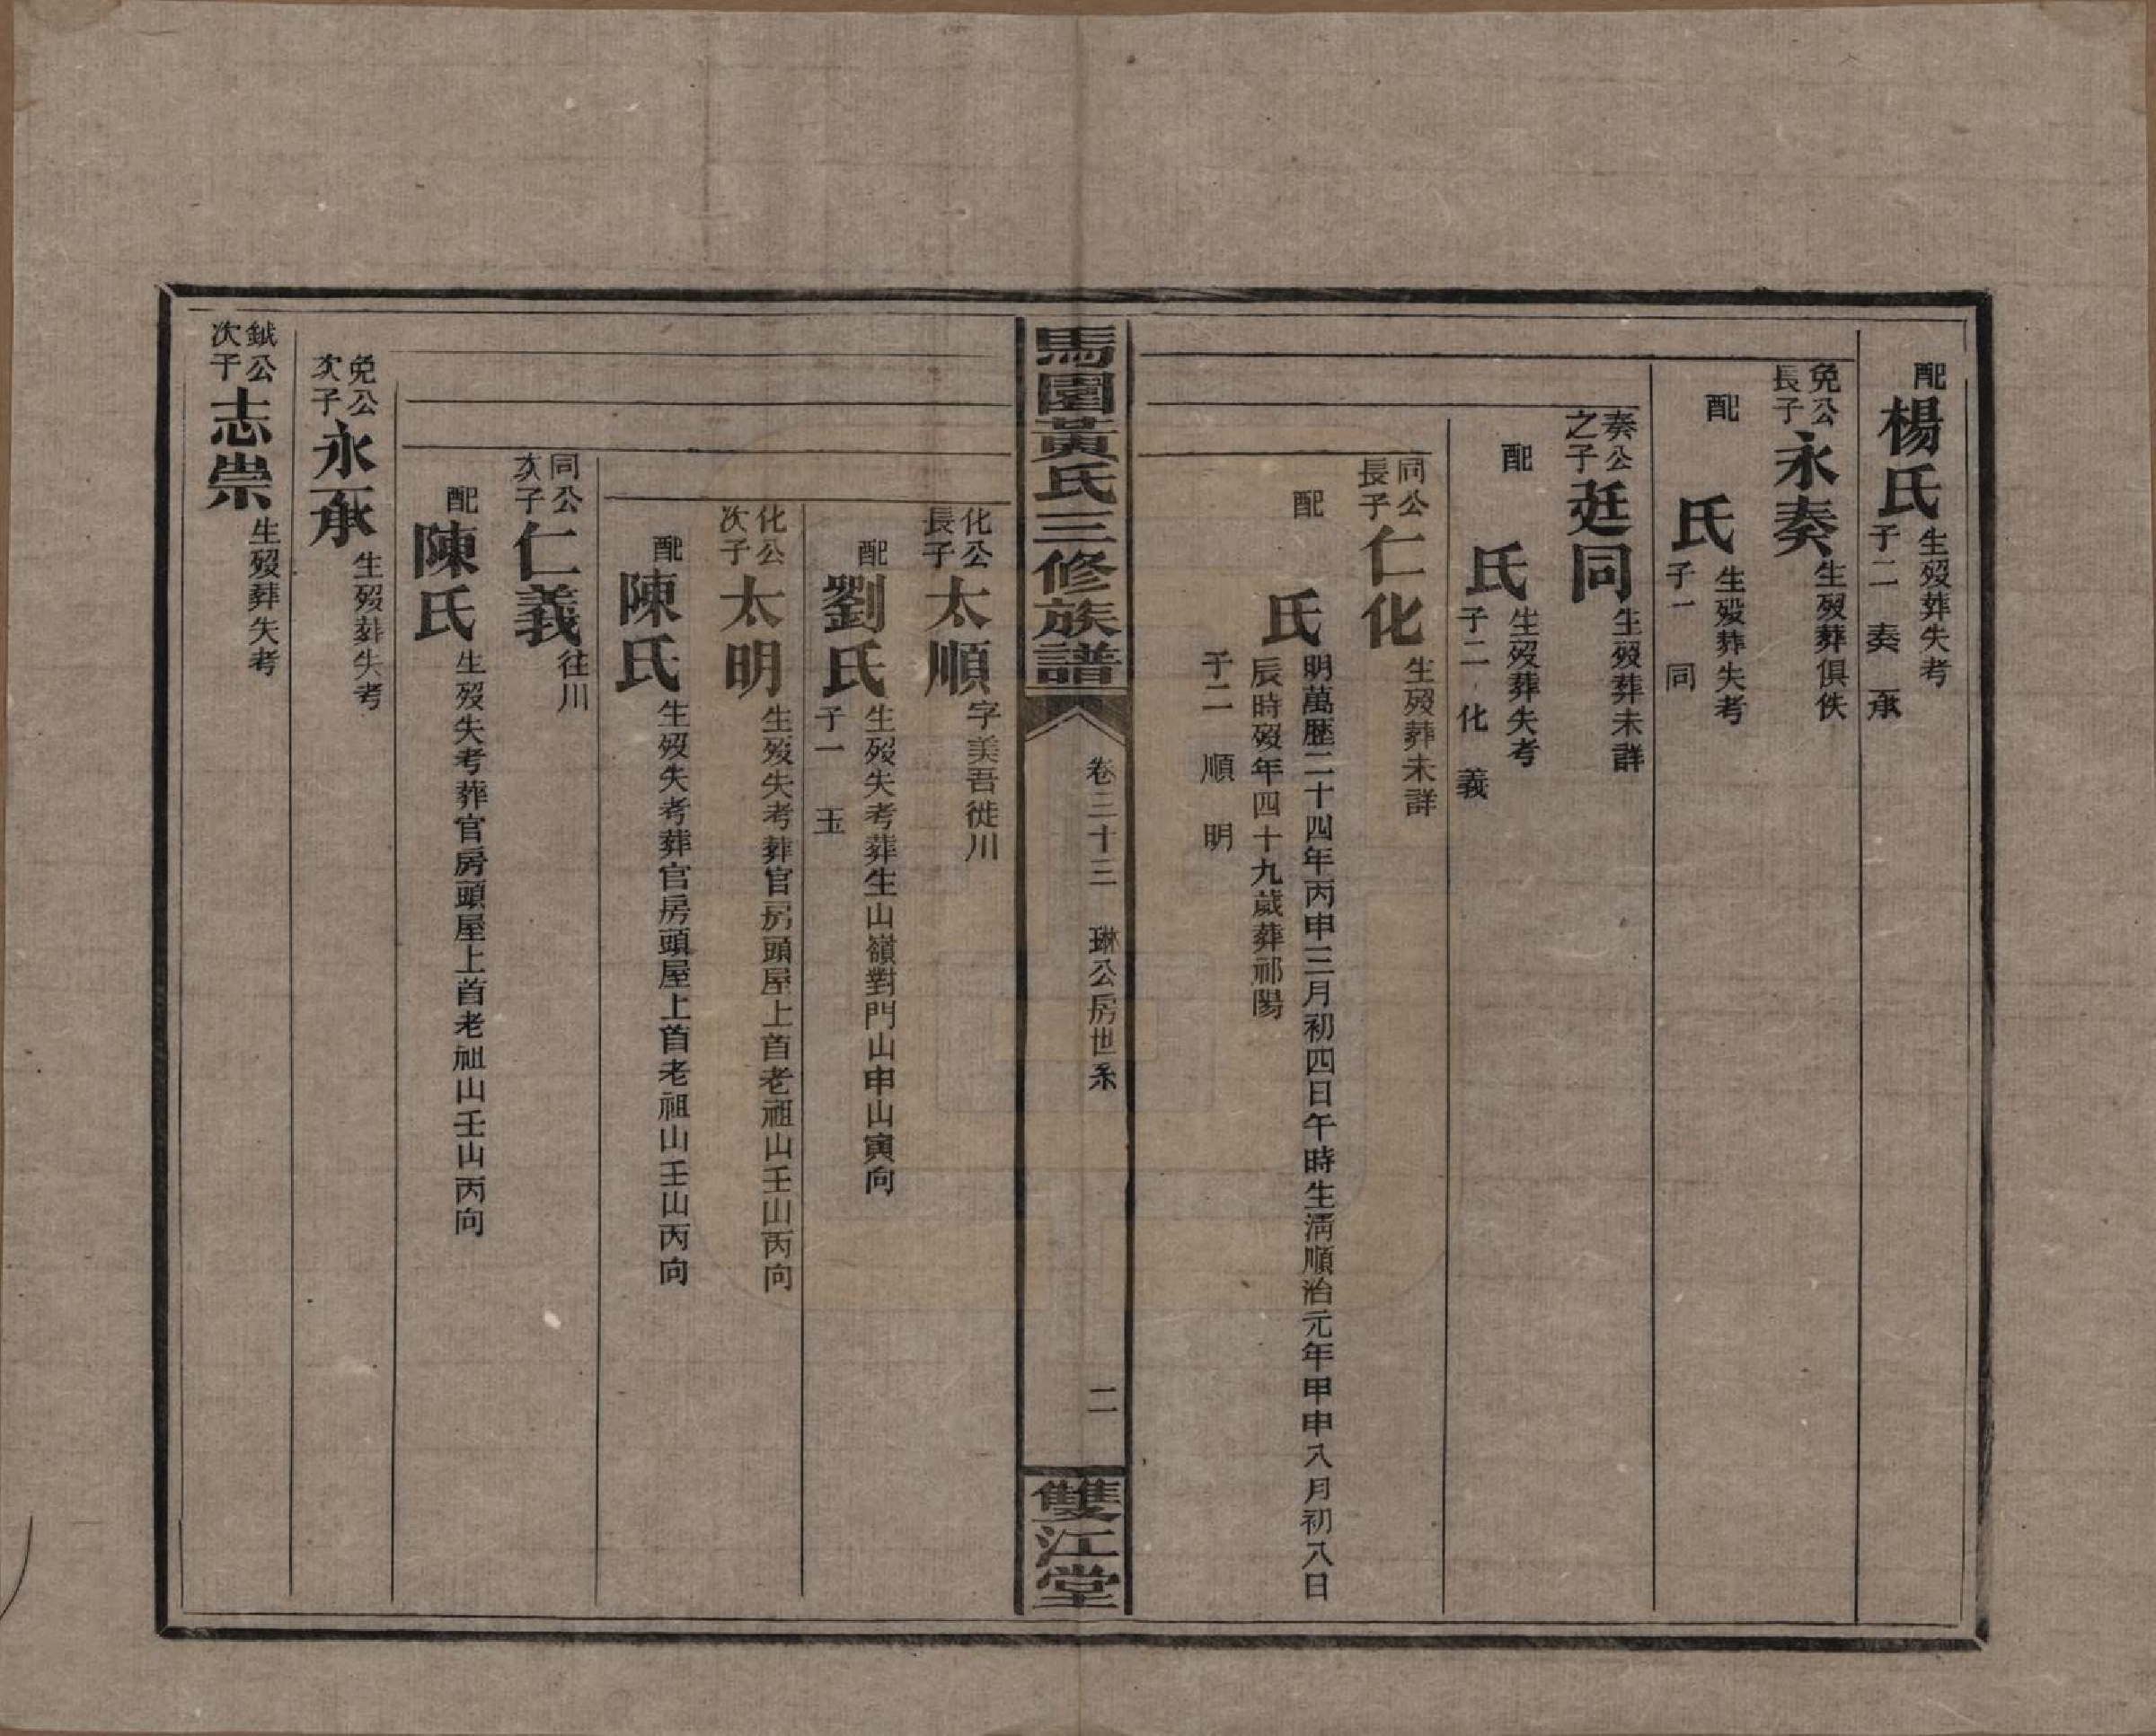 配
楊氏
生歿葬失考
子二 奏 承
免公
長子
永奏
生歿葬俱佚
配
氏
生歿葬失考
子一 同
奏公
之子
廷同
生歿葬未詳
配
氏
生歿葬失考
子二 化 義
同公
長子
仁化
生歿葬未詳
配
氏
明萬歷二十四年丙申三月初四日午時生淸順治元年甲申八月初八日
辰時歿年四十九歲葬祁陽
子二 順 明
馬園黃氏三修族譜
卷三十三 琳公房世系
二
雙江堂
化公
長子
太順
字美吾徙川
配
劉氏
生歿失考葬生山嶺對門山申山寅向
子一 玉
化公
次子
太明
生歿失考葬官房頭屋上首老祖山壬山丙向
配
陳氏
生歿失考葬官房頭屋上首老祖山壬山丙向
同公
次子
仁義
往川
配
陳氏
生歿失考葬官房頭屋上首老祖山壬山丙向
免公
次子
永承
生歿葬失考
鉞公
次子
志崇
生歿葬失考